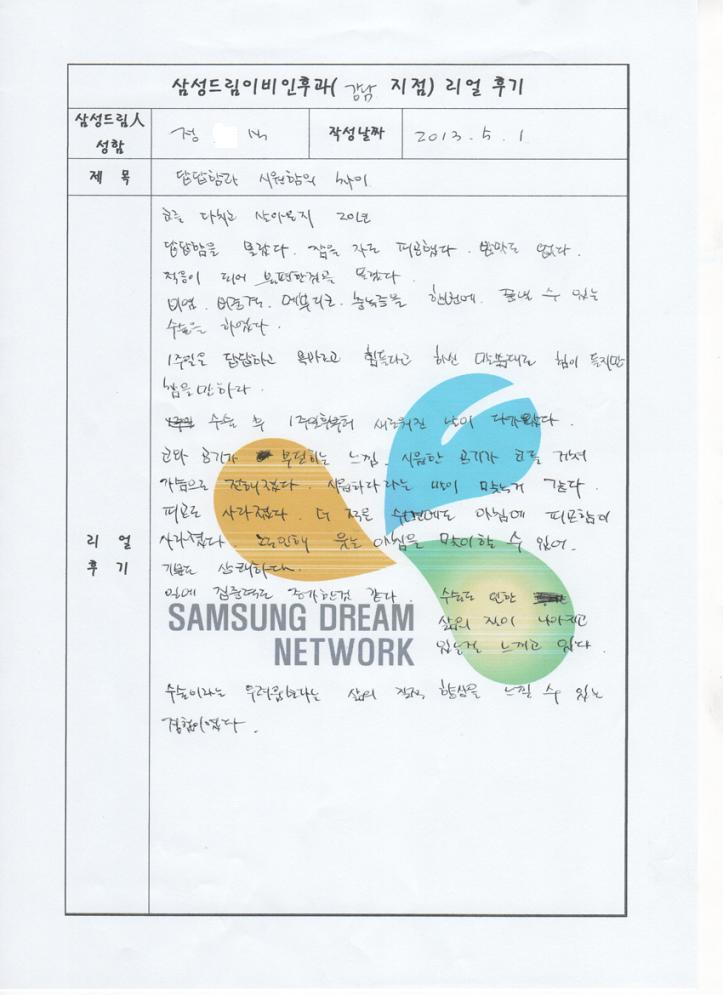 삼성드림이비인후과( 강남 지점) 리얼 후기
삼성드림人
성함
정
작성날짜
2013. 5. 1
제 목
답답함과 시원함의 차이
코를 다치고 살아온지 20년
답답함을 몰랐다. 잠을 자도 피곤했다. 밥맛도 없다.
적응이 되어 불편한점을 몰랐다
비염, 비중격, 매부리코, 축농증을 한번에 끝낼 수 있는
수술을 하였다.
1주일은 답답하고 목마르고 힘들다고 하신 말씀대로 힘이 들지만
참을만 하다
수술 후 1주일후부터 새로워진 날이 다가왔다.
코와 공기가 부딪히는 느낌. 시원한 공기가 코를 거쳐
가슴으로 전해졌다. 시원하다라는 말이 맞는거 같다.
피로도 사라졌다. 더 적은 수면에도 아침에 피곤함이
사라졌다. 그로인해 웃는 아침을 맞이할 수 있어.
기분도 상쾌하다.
일에 집중력도 증가한것 같다.
수술로 인한
삶의 질이 나아지고
있는걸 느끼고 있다.
수술이라는 두려움보다는 삶의 질적 향상을 느낄 수 있는
경험이였다.
리 얼
후 기
SAMSUNG DREAM
NETWORK